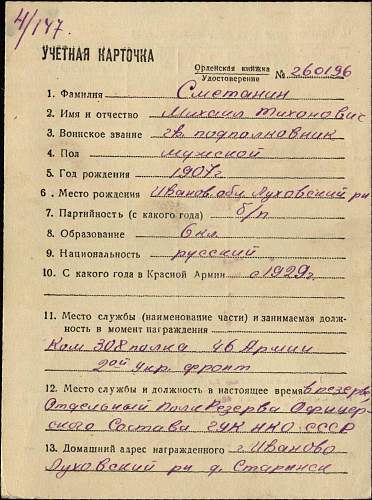 4/147.
УЧЕТНАЯ КАРТОЧКА
Орденская книжка
Удостоверение № 260196
1. Фамилия Сметанин
2. Имя и отчество Михаил Тихонович
3. Воинское звание гв. подполковник
4. Пол мужской
5. Год рождения 1907г.
6. Место рождения Иванов. обл. Луховский рн
7. Партийность (с какого года) б/п
8. Образование 6 кл.
9. Национальность русский
10. С какого года в Красной Армии с 1929г.
11. Место службы (наименование части) и занимаемая долж-
ность в момент награждения
Ком 308 полка 46 Армии
2ой укр. фронт
12. Место службы и должность в настоящее время в резерве
Отдельный Полк Резерва Офицер-
ского Состава ГУК НКО СССР
13. Домашний адрес награжденного г. Иваново
Луховский рн д. Старинск